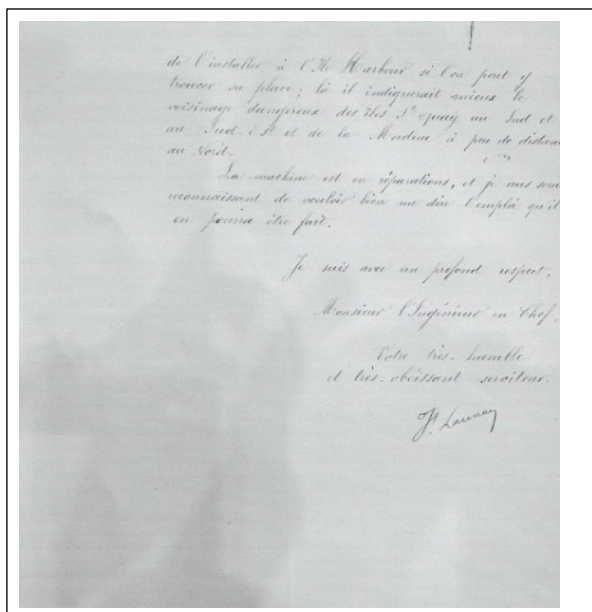 de l'installer à l'Ile Harbour si l'on peut y
trouver sa place; là il indiquerait mieux le
voisinage dangereux des îles St Quay au Sud et
au Sud-Est et de la Mordene à peu de distance
au Nord.
La machine est en réparations, et je vous serai
reconnaissant de vouloir bien me dire l'emploi qu'il
en pourra être fait.
Je suis avec un profond respect,
Monsieur l'Ingénieur en Chef,
Votre très-humble
et très-obéissant serviteur.
Launay